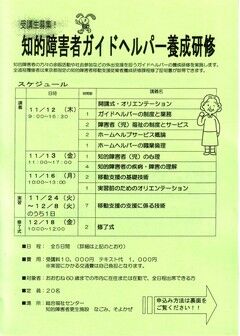 受講生募集！
知的障害者ガイドヘルパー養成研修
スケジュール
日時
時間数
講義名
講義
11／12（木）
9:00～16:30
開講式・オリエンテーション
1 ガイドヘルパーの制度と業務
2 障害者（児）福祉の制度とサービス
2 ホームヘルプサービス概論
1 ホームヘルパーの職業倫理
11／13（金）
11:00～17:00
1 知的障害者（児）の心理
4 知的障害者の疾病・障害の理解
11／16（月）
10:00～13:00
2 移動支援の基礎技術
1 実習前のためのオリエンテーション
実習
11／24（火）
～12／8（火）
のうち1日
7 移動支援の支援に係る技術
修了式
12／18（金）
10:00～12:00
2 修了式
■日程： 全5日間（詳細は上記のとおり）
■費用： 受講料10,000円 テキスト代 1,000円
■対象者：
■定員： 20名
■場所： 総合福祉センター
申込み方法は裏面を
ご覧ください！！